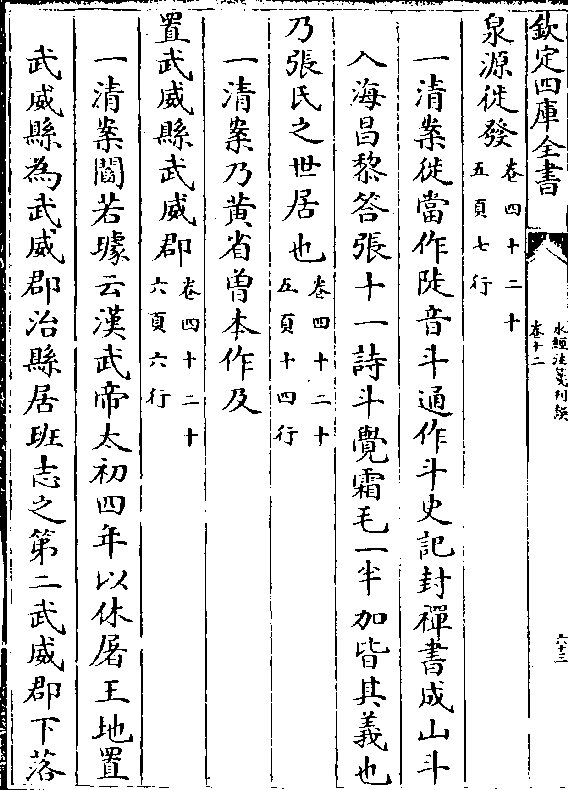 欽定四庫全書
水經注箋刊誤
卷十二
六十三
泉源徙發卷四十二十
五頁七行
一清案徙當作陡音斗通作斗史記封禪書成山斗
入海昌黎答張十一詩斗覺霜毛一半加皆其義也
乃張氏之世居也卷四十二十
五頁十四行
一清案乃黄省曽本作及
置武威縣武威郡卷四十二十
六頁六行
一清案閻若璩云漢武帝太初四年以休屠王地置
武威縣為武威郡治縣居班志之第二武威郡下落